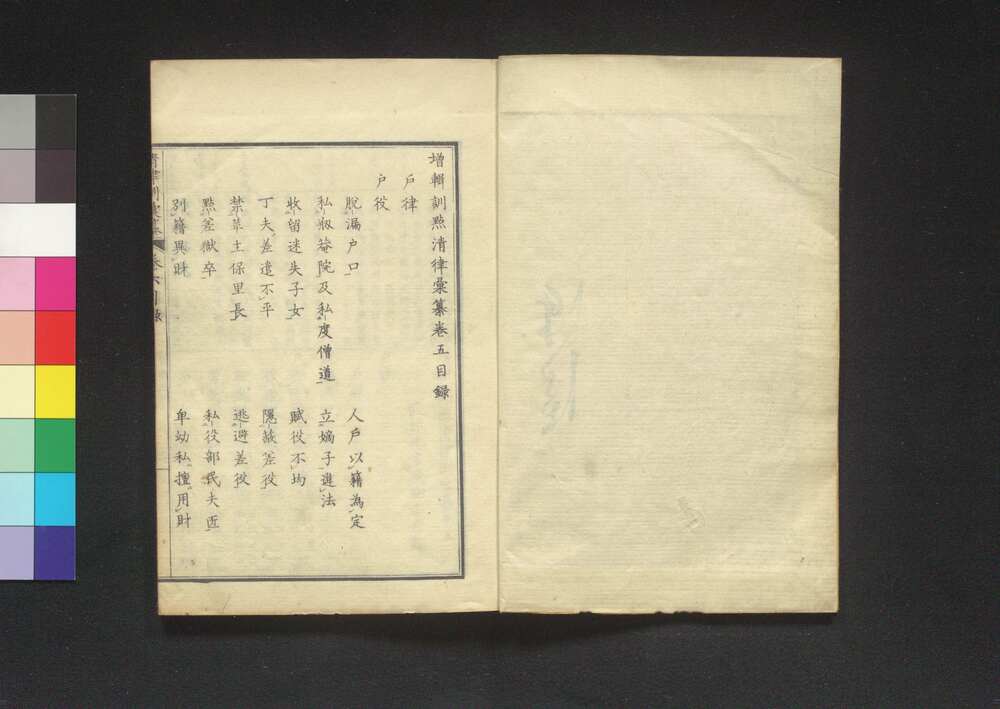 增輯訓點清律彙纂卷五目録
戶律
戶役
脫漏户口
人戶以籍為定
私剏菴院及私度僧道
立嫡子違法
收留迷失子女
賦役不均
丁夫差遣不平
隱蔽差役
禁革主保里長
逃避差役
點差獄卒
私役部民夫匠
別籍異財
卑幼私擅用財